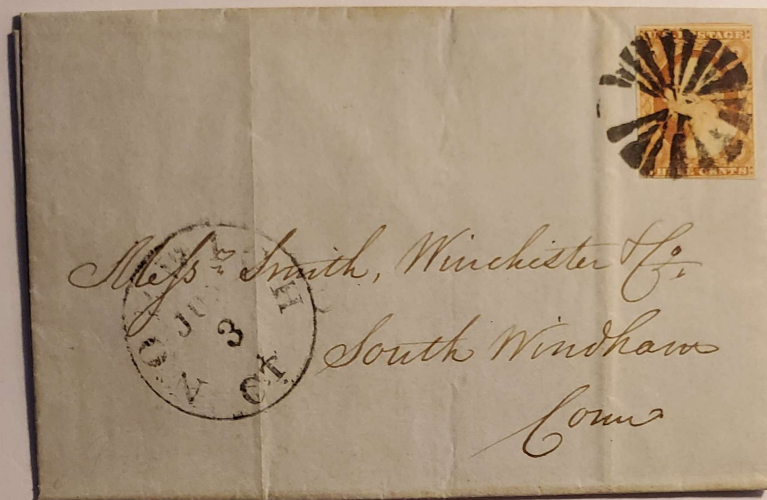 U.S. POSTAGE
THREE CENTS
Messrs Smith, Winchester & Co.
South Windham
Conn
NORWICH
JU
3
Ct